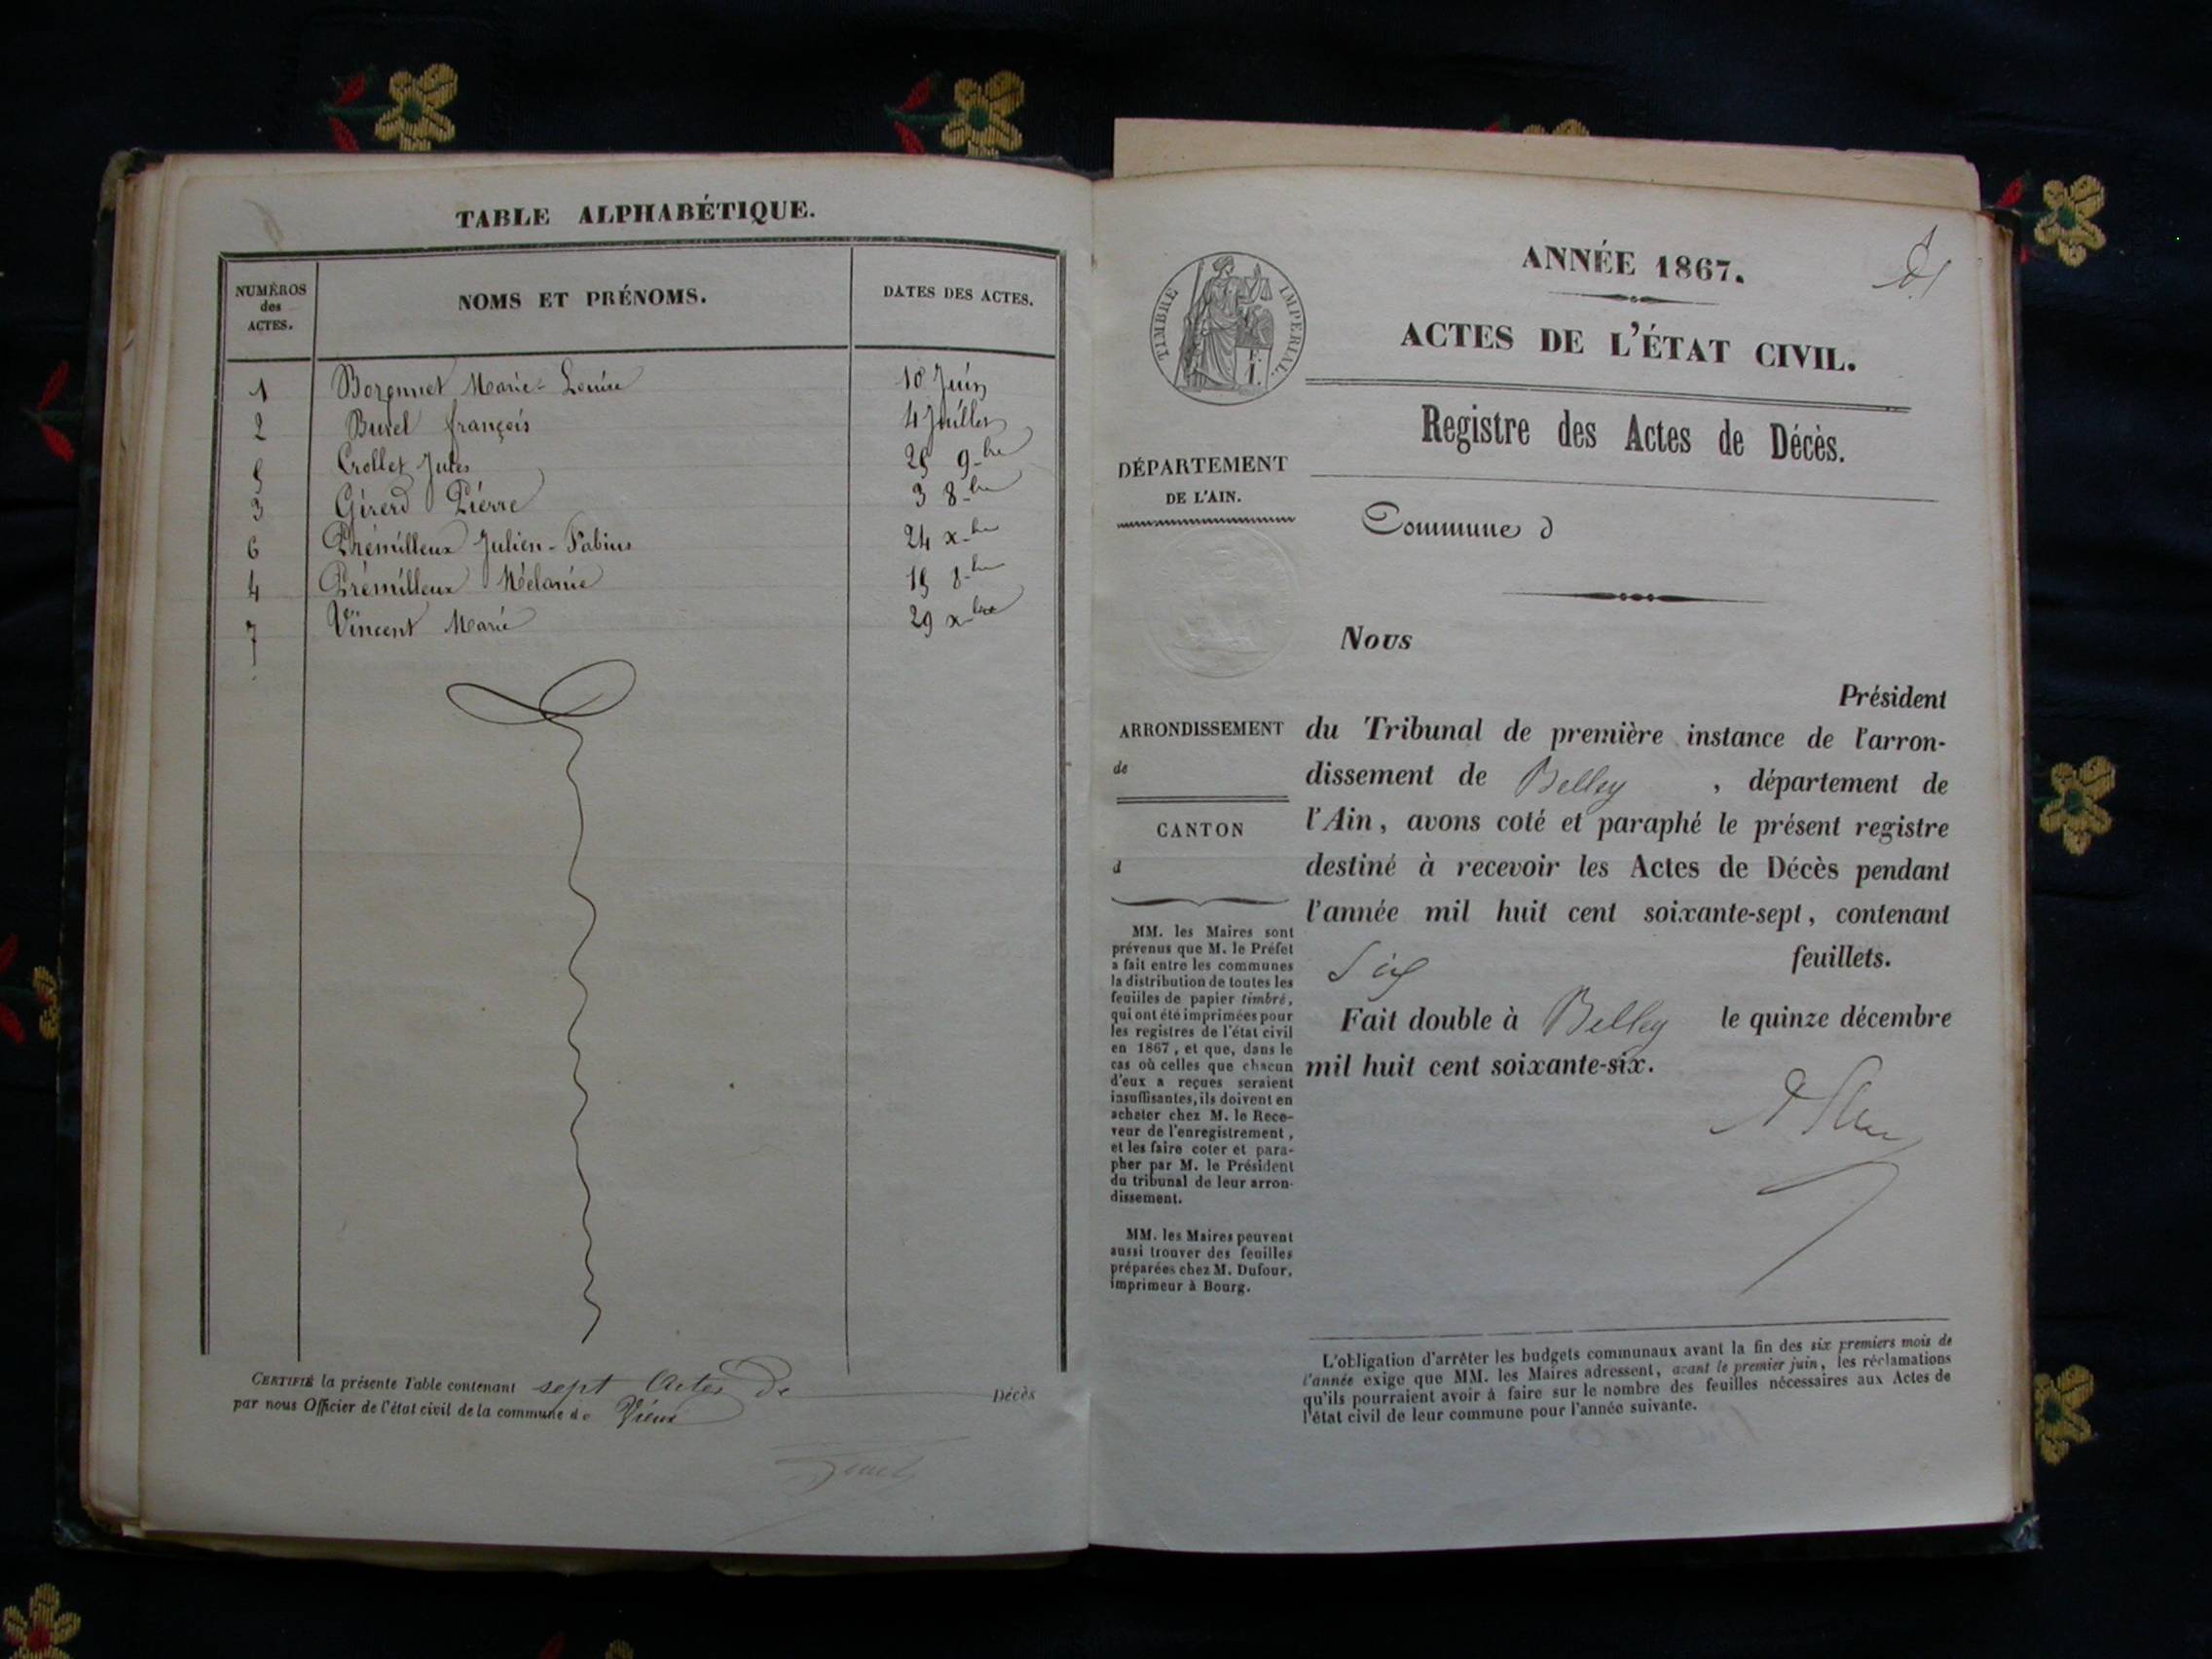 TABLE ALPHABÉTIQUE.
NUMÉROS des ACTES.
NOMS ET PRÉNOMS.
DATES DES ACTES.
1 Marie-Louise 10 Juin
2 Burel françois 4 Juillet
5 Crollet Jules 25 9-bre
3 Girerd Pierre 3 8-bre
6 Prémilleux Julien-Fabius 24 x-bre
4 Prémilleux Mélanie 15 8-bre
7 Vincent Marie 29 x-bre
CERTIFIÉ la présente Table contenant sept Actes De Décès
par nous Officier de l'état civil de la commune de Vieu
TIMBRE IMPERIAL.
ANNÉE 1867.
ACTES DE L'ÉTAT CIVIL.
Registre des Actes de Décès.
DÉPARTEMENT
DE L'AIN.
Commune d
Nous
Président
du Tribunal de première instance de l'arron-
dissement de Belley , département de
l'Ain, avons coté et paraphé le présent registre
destiné à recevoir les Actes de Décès pendant
l'année mil huit cent soixante-sept, contenant
Six feuillets.
Fait double à Belley le quinze décembre
mil huit cent soixante-six.
ARRONDISSEMENT
de
CANTON
d
MM. les Maires sont
prévenus que M. le Préfet
a fait entre les communes
la distribution de toutes les
feuilles de papier timbré,
qui ont été imprimées pour
les registres de l'état civil
en 1867, et que, dans le
cas où celles que chacun
d'eux a reçues seraient
insuffisantes, ils doivent en
acheter chez M. le Rece-
veur de l'enregistrement,
et les faire coter et para-
pher par M. le Président
du tribunal de leur arron-
dissement.
MM. les Maires peuvent
aussi trouver des feuilles
préparées chez M. Dufour,
imprimeur à Bourg.
L'obligation d'arrêter les budgets communaux avant la fin des six premiers mois de
l'année exige que MM. les Maires adressent, avant le premier juin, les réclamations
qu'ils pourraient avoir à faire sur le nombre des feuilles nécessaires aux Actes de
l'état civil de leur commune pour l'année suivante.